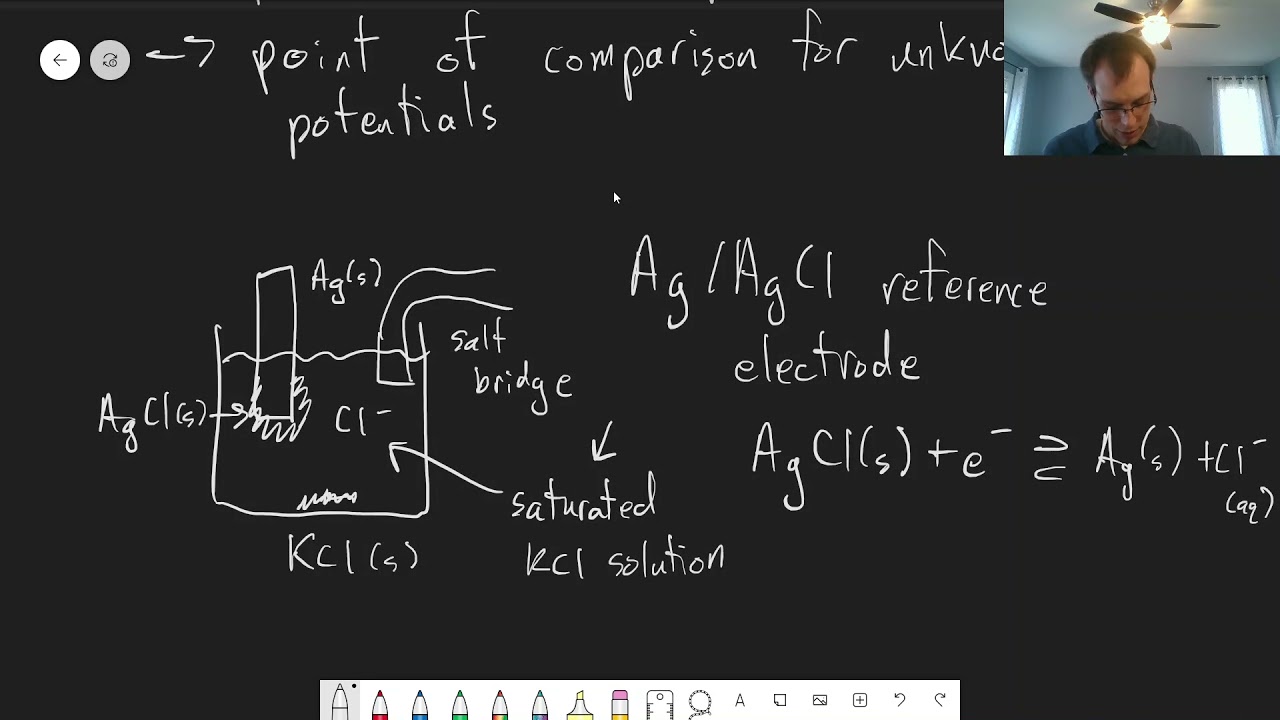 <-> point of comparison for
potentials
Ag(s)
Ag/AgCl reference
electrode
salt
bridge
AgCl(s)
Cl⁻
AgCl(s) + e⁻ ⇌ Ag(s) + Cl⁻
(aq)
saturated
KCl solution
KCl(s)
A